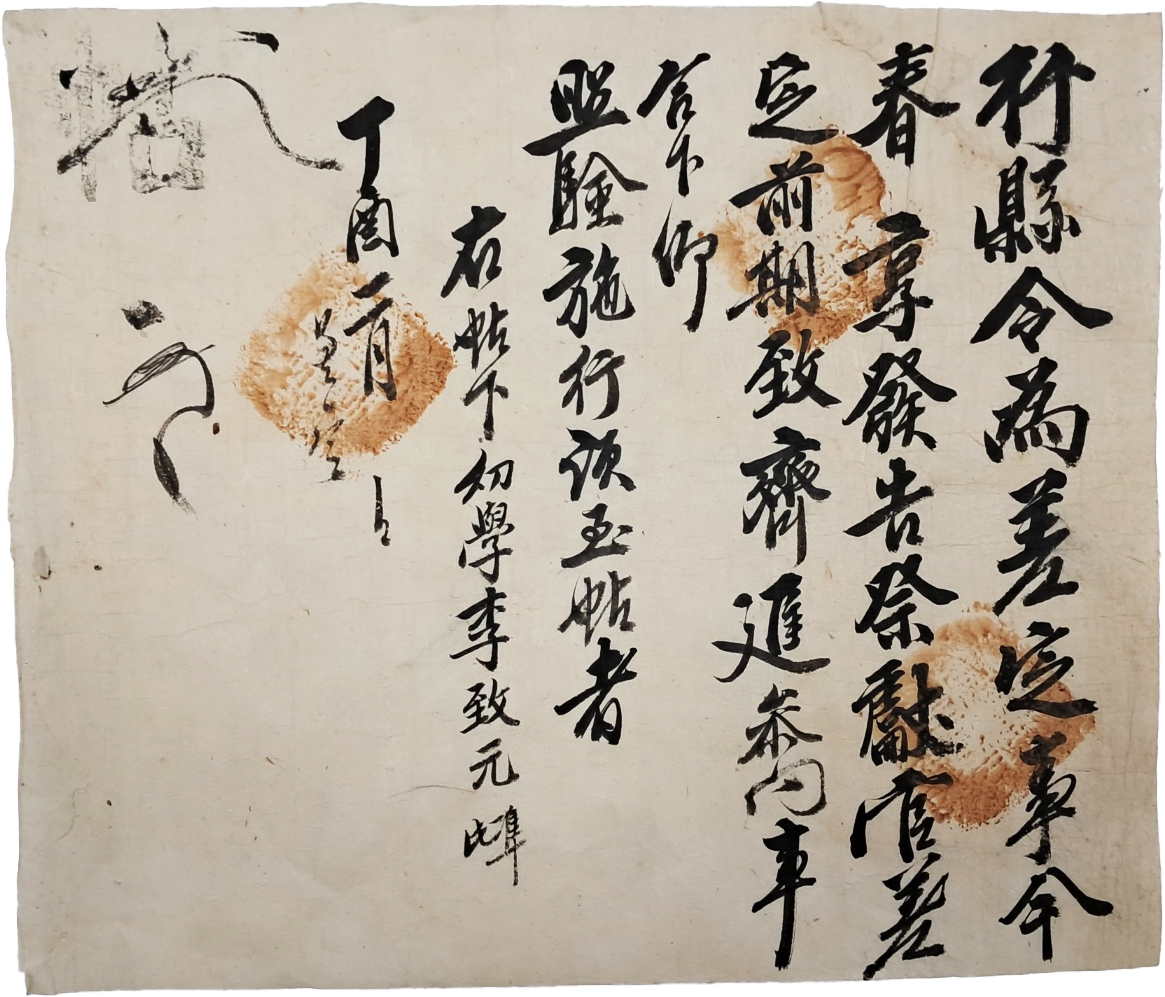 行縣令爲差定事今
春 享發告祭獻官差
定前期致齊進參向事
合下仰
照驗施行須至帖者
右帖下幼學李致元 準此
丁酉二月 日
帖
行